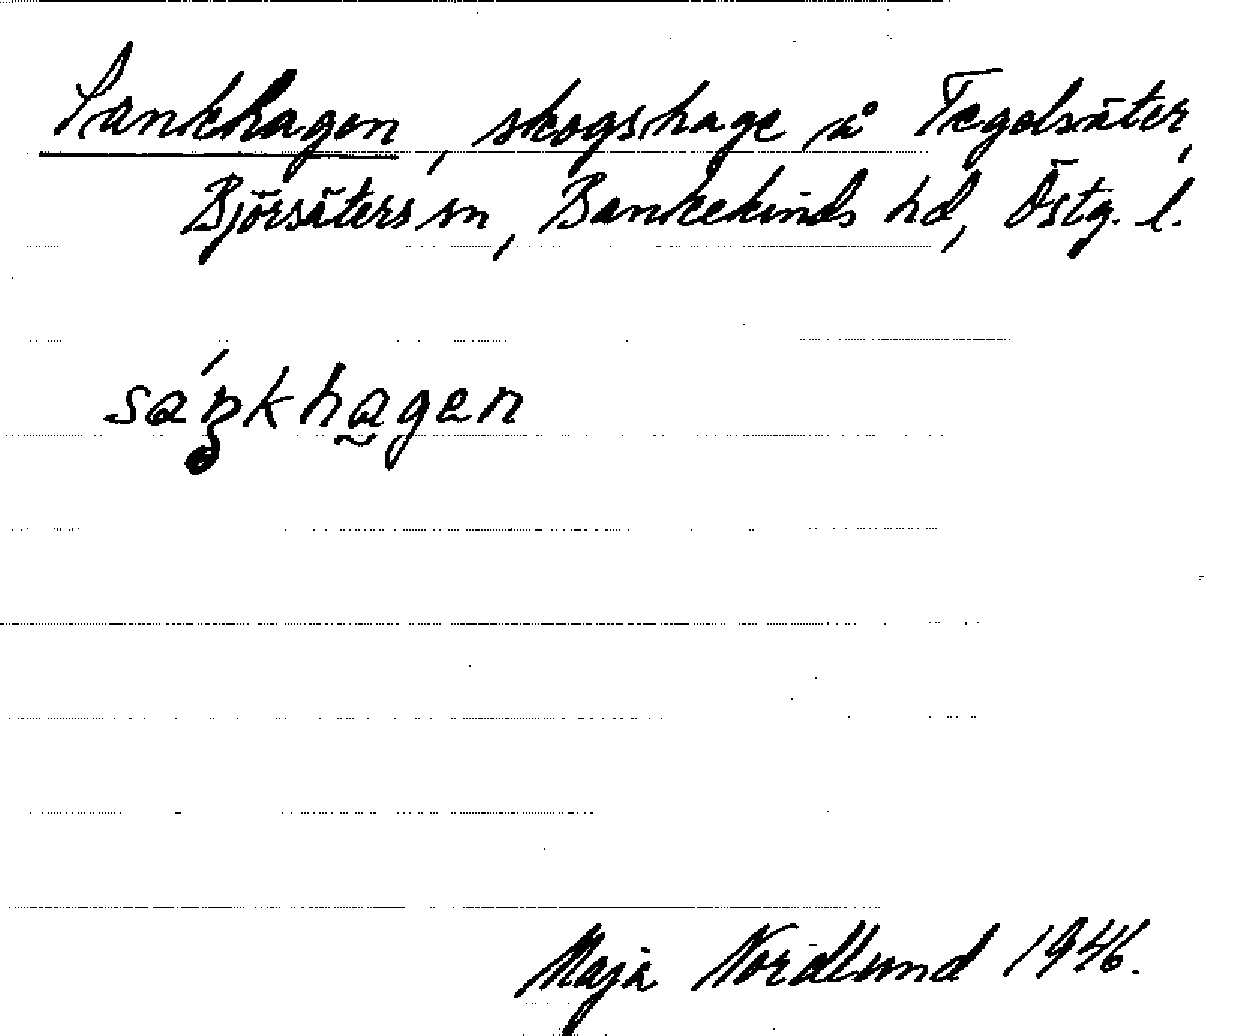 Sankhagen, skogshage å Tegelsäter,
Björsäters sn, Bankekinds hd, Östg. l.
sáŋkhagen
Maja Nordlund 1946.